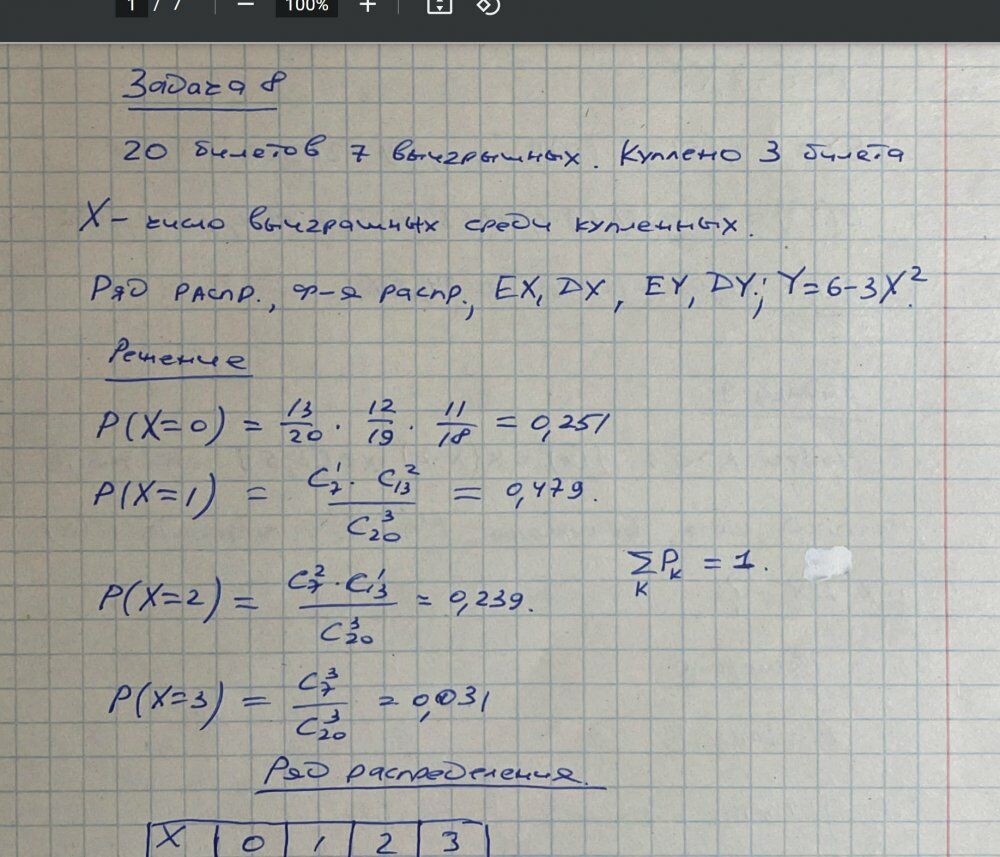 1 / 7 — 100% +
Задача 8
20 билетов 7 выигрышных. Куплено 3 билета
X – число выиграшных среди купленных.
Ряд распр., ф-я распр., EX, DX, EY, DY; Y = 6 - 3X².
Решение
P(X=0) = 13/20 · 12/19 · 11/18 = 0,251
P(X=1) = C₇¹ · C₁₃² / C₂₀³ = 0,479.
P(X=2) = C₇² · C₁₃¹ / C₂₀³ = 0,239.
∑ₖ Pₖ = 1.
P(X=3) = C₇³ / C₂₀³ = 0,031
Ряд распределения.
X 0 1 2 3